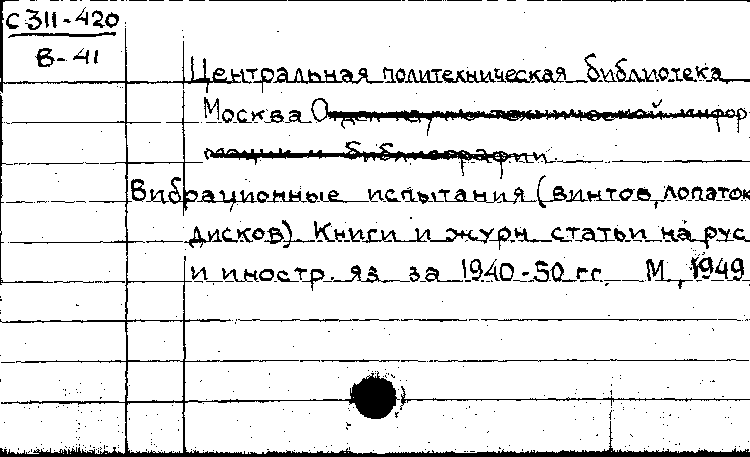 С 311-420
В-41
Центральная политехническая библиотека
Москва Отдел научно-технической инфор
мации и библиографии
Вибрационные испытания (винтов, лопаток
дисков). Книги и журн. статьи на рус
и иностр. яз. за 1940-50 гг. М., 1949